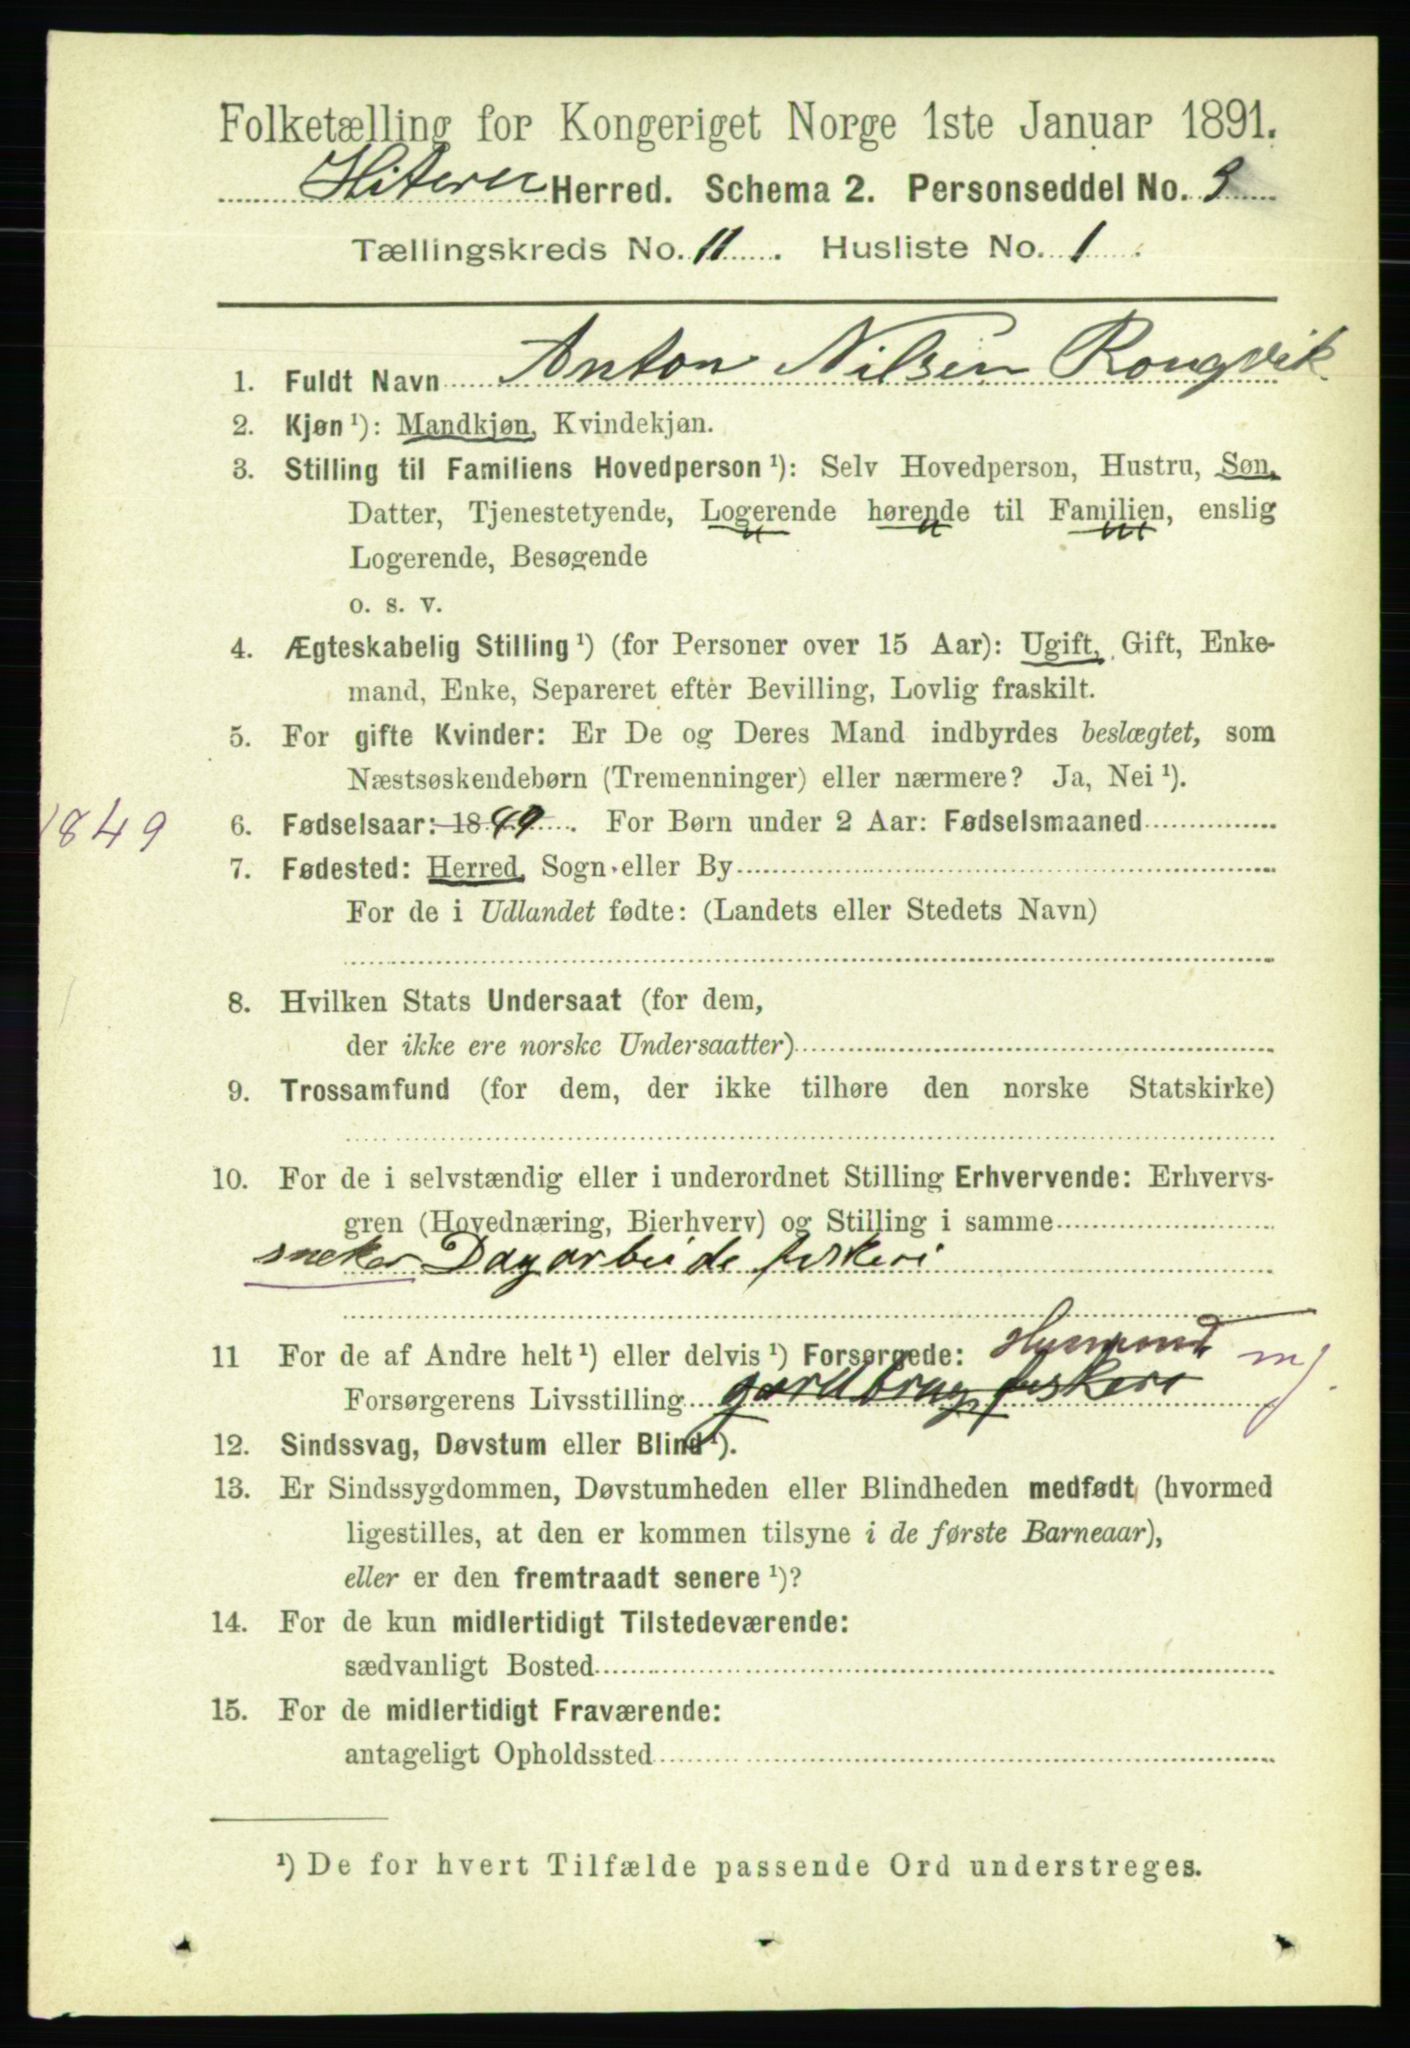 Folketælling for Kongeriget Norge 1ste Januar 1891.
Hiteren Herred. Schema 2. Personseddel No. 3
Tællingskreds No. 11. Husliste No. 1.
1. Fuldt Navn Anton Nilsen Rongvik
2. Kjøn ¹): Mandkjøn, Kvindekjøn.
3. Stilling til Familiens Hovedperson ¹): Selv Hovedperson, Hustru, Søn,
Datter, Tjenestetyende, Logerende hørende til Familien, enslig
Logerende, Besøgende
o. s. v.
4. Ægteskabelig Stilling ¹) (for Personer over 15 Aar): Ugift, Gift, Enke-
mand, Enke, Separeret efter Bevilling, Lovlig fraskilt.
5. For gifte Kvinder: Er De og Deres Mand indbyrdes beslægtet, som
Næstsøskendebørn (Tremenninger) eller nærmere? Ja, Nei ¹).
1849 6. Fødselsaar: 1849. For Børn under 2 Aar: Fødselsmaaned
7. Fødested: Herred, Sogn eller By
For de i Udlandet fødte: (Landets eller Stedets Navn)
8. Hvilken Stats Undersaat (for dem,
der ikke ere norske Undersaatter)
9. Trossamfund (for dem, der ikke tilhøre den norske Statskirke)
10. For de i selvstændig eller i underordnet Stilling Erhvervende: Erhvervs-
gren (Hovednæring, Bierhverv) og Stilling i samme
sneker Dagarbeide fiskeri
11 For de af Andre helt ¹) eller delvis ¹) Forsørgede: Husmand m/
Forsørgerens Livsstilling gardbrug fiskeri
12. Sindssvag, Døvstum eller Blind ¹).
13. Er Sindssygdommen, Døvstumheden eller Blindheden medfødt (hvormed
ligestilles, at den er kommen tilsyne i de første Barneaar),
eller er den fremtraadt senere ¹)?
14. For de kun midlertidigt Tilstedeværende:
sædvanligt Bosted
15. For de midlertidigt Fraværende:
antageligt Opholdssted
¹) De for hvert Tilfælde passende Ord understreges.